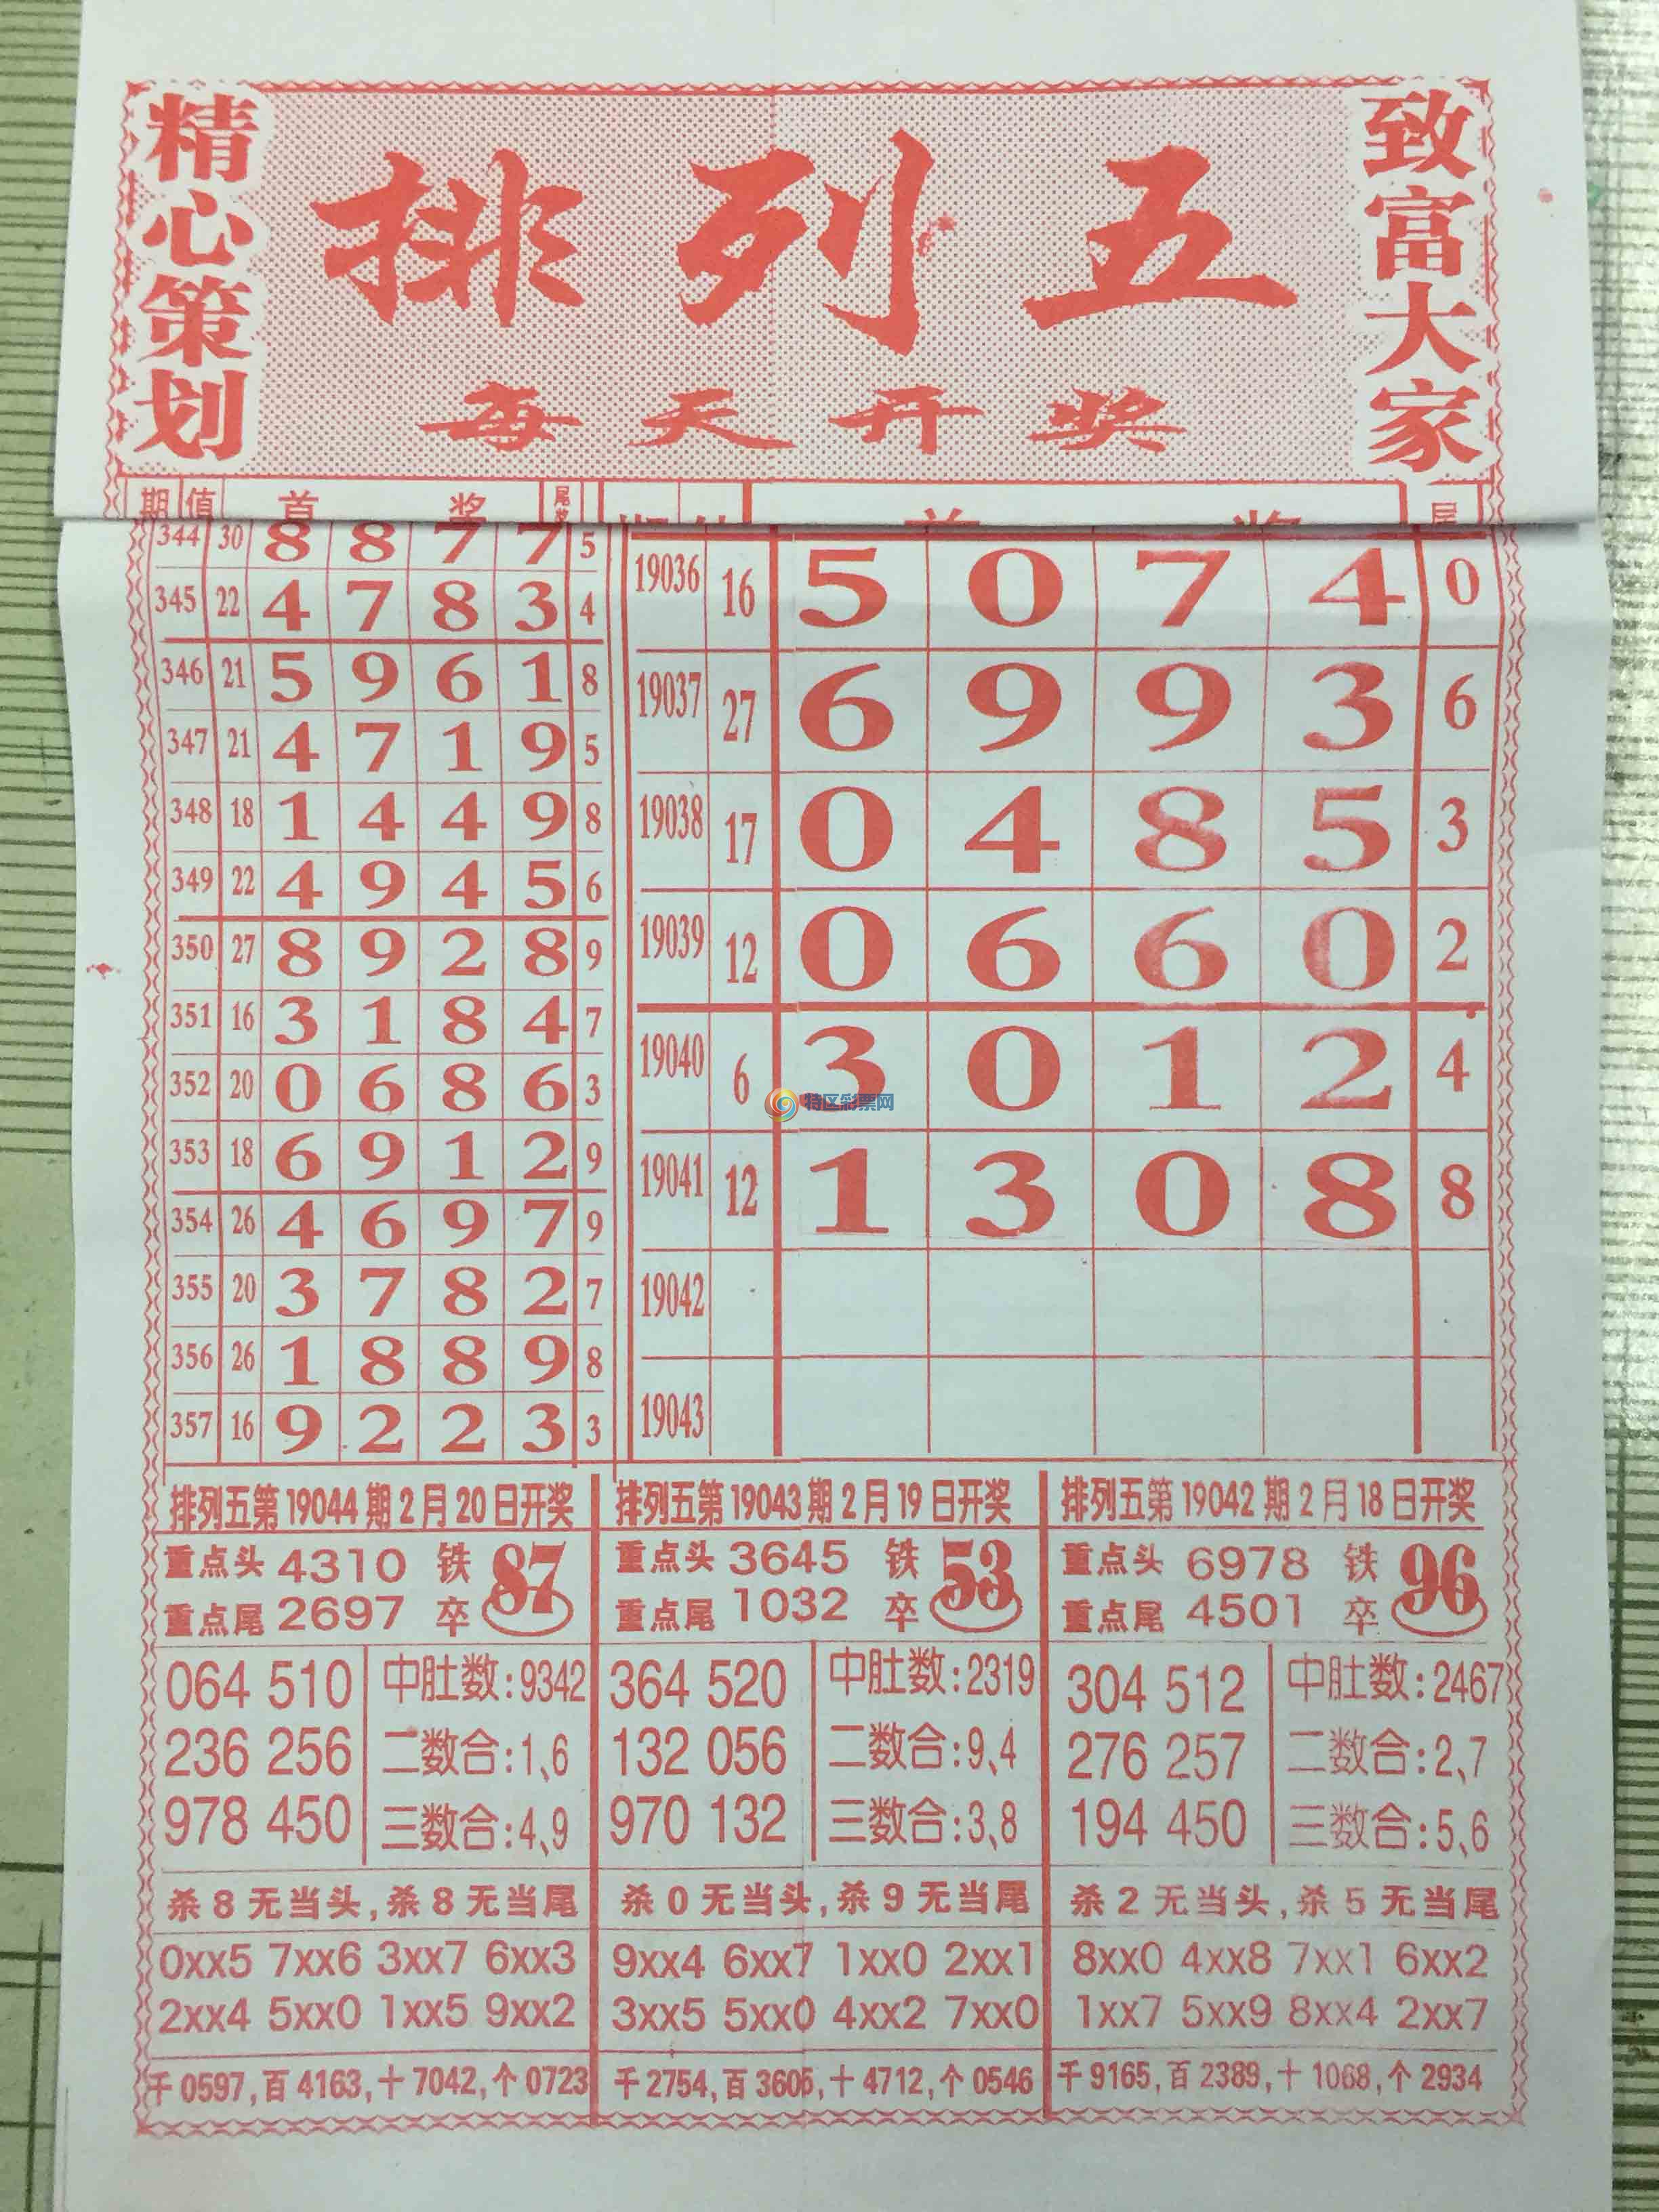 精心策划
排列五
每天开奖
致富大家
期 值 首 奖 尾奖
344 30 8 8 7 7 5
345 22 4 7 8 3 4
346 21 5 9 6 1 8
347 21 4 7 1 9 5
348 18 1 4 4 9 8
349 22 4 9 4 5 6
350 27 8 9 2 8 9
351 16 3 1 8 4 7
352 20 0 6 8 6 3
353 18 6 9 1 2 9
354 26 4 6 9 7 9
355 20 3 7 8 2 7
356 26 1 8 8 9 8
357 16 9 2 2 3 3
19036 16 5 0 7 4 0
19037 27 6 9 9 3 6
19038 17 0 4 8 5 3
19039 12 0 6 6 0 2
19040 6 3 0 1 2 4
特区彩票网
19041 12 1 3 0 8 8
19042
19043
排列五第19044期2月20日开奖
重点头 4310 铁
重点尾 2697 卒 87
064 510 中肚数:9342
236 256 二数合:1、6
978 450 三数合:4、9
杀8无当头,杀8无当尾
0xx5 7xx6 3xx7 6xx3
2xx4 5xx0 1xx5 9xx2
千0597,百4163,十7042,个0723
排列五第19043期2月19日开奖
重点头 3645 铁
重点尾 1032 卒 53
364 520 中肚数:2319
132 056 二数合:9、4
970 132 三数合:3、8
杀0无当头,杀9无当尾
9xx4 6xx7 1xx0 2xx1
3xx5 5xx0 4xx2 7xx0
千2754,百3605,十4712,个0546
排列五第19042期2月18日开奖
重点头 6978 铁
重点尾 4501 卒 96
304 512 中肚数:2467
276 257 二数合:2、7
194 450 三数合:5、6
杀2无当头,杀5无当尾
8xx0 4xx8 7xx1 6xx2
1xx7 5xx9 8xx4 2xx7
千9165,百2389,十1068,个2934